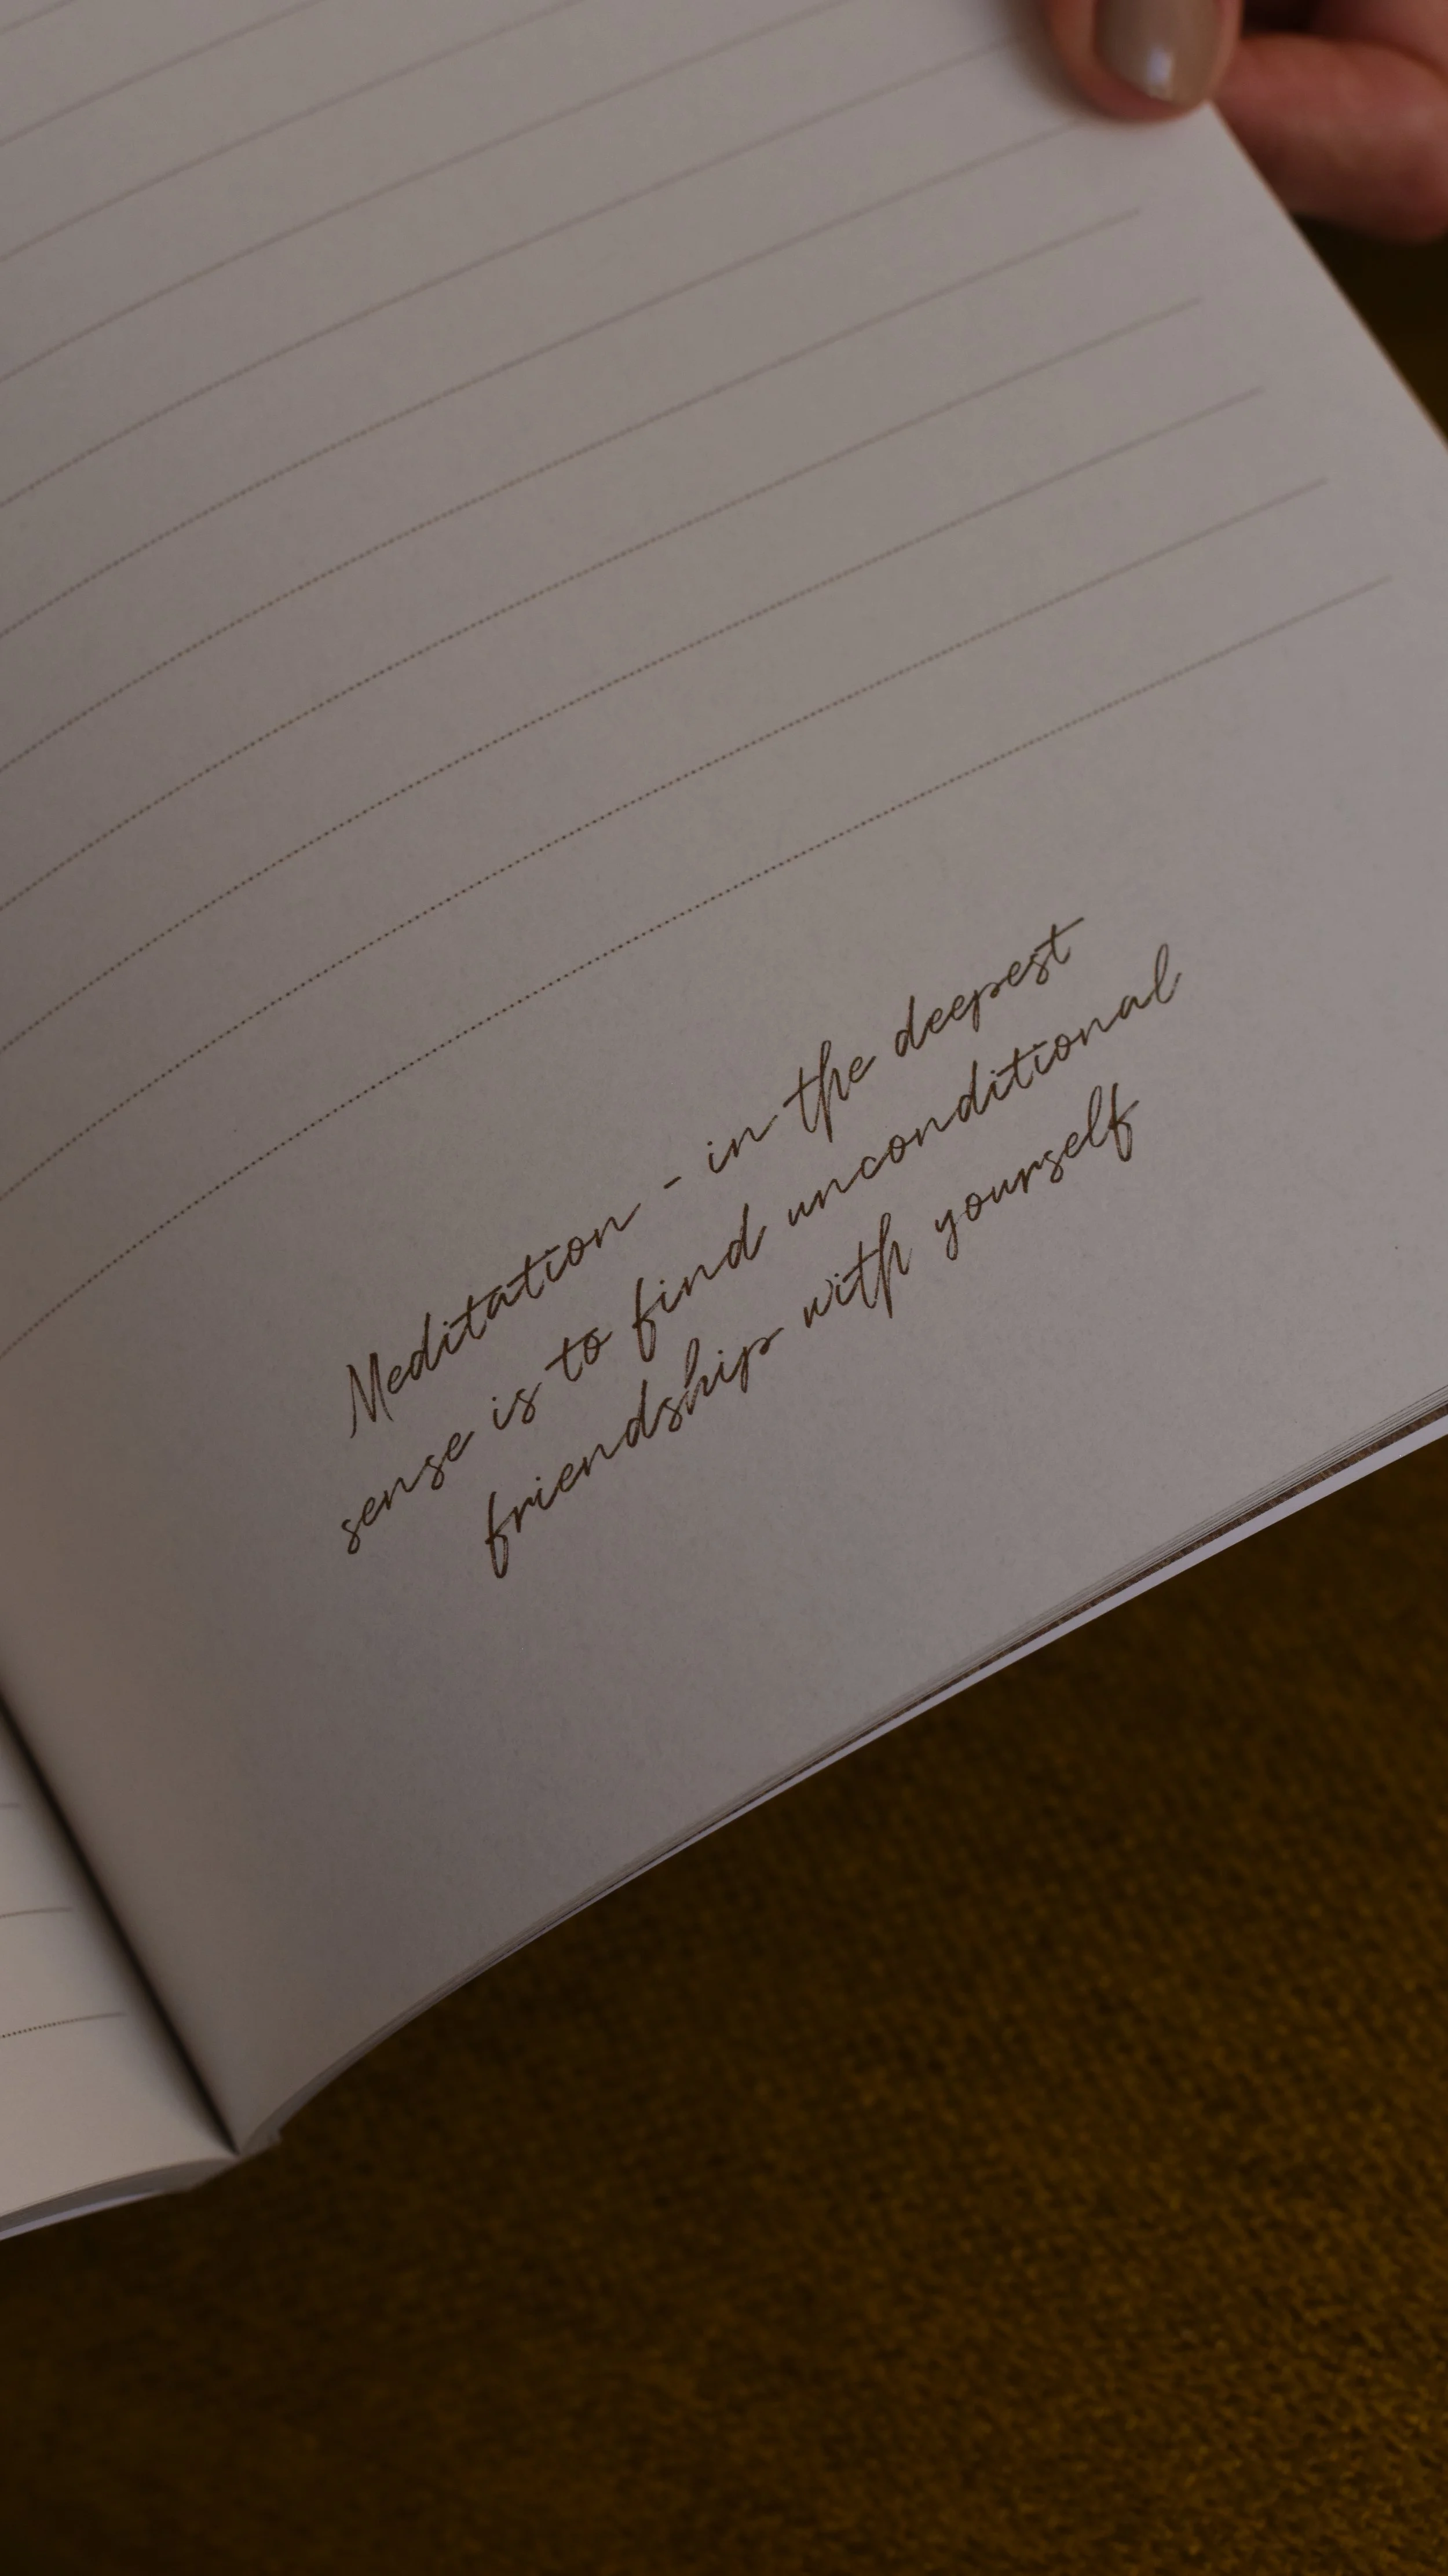 Meditation - in the deepest
sense is to find unconditional
friendship with yourself